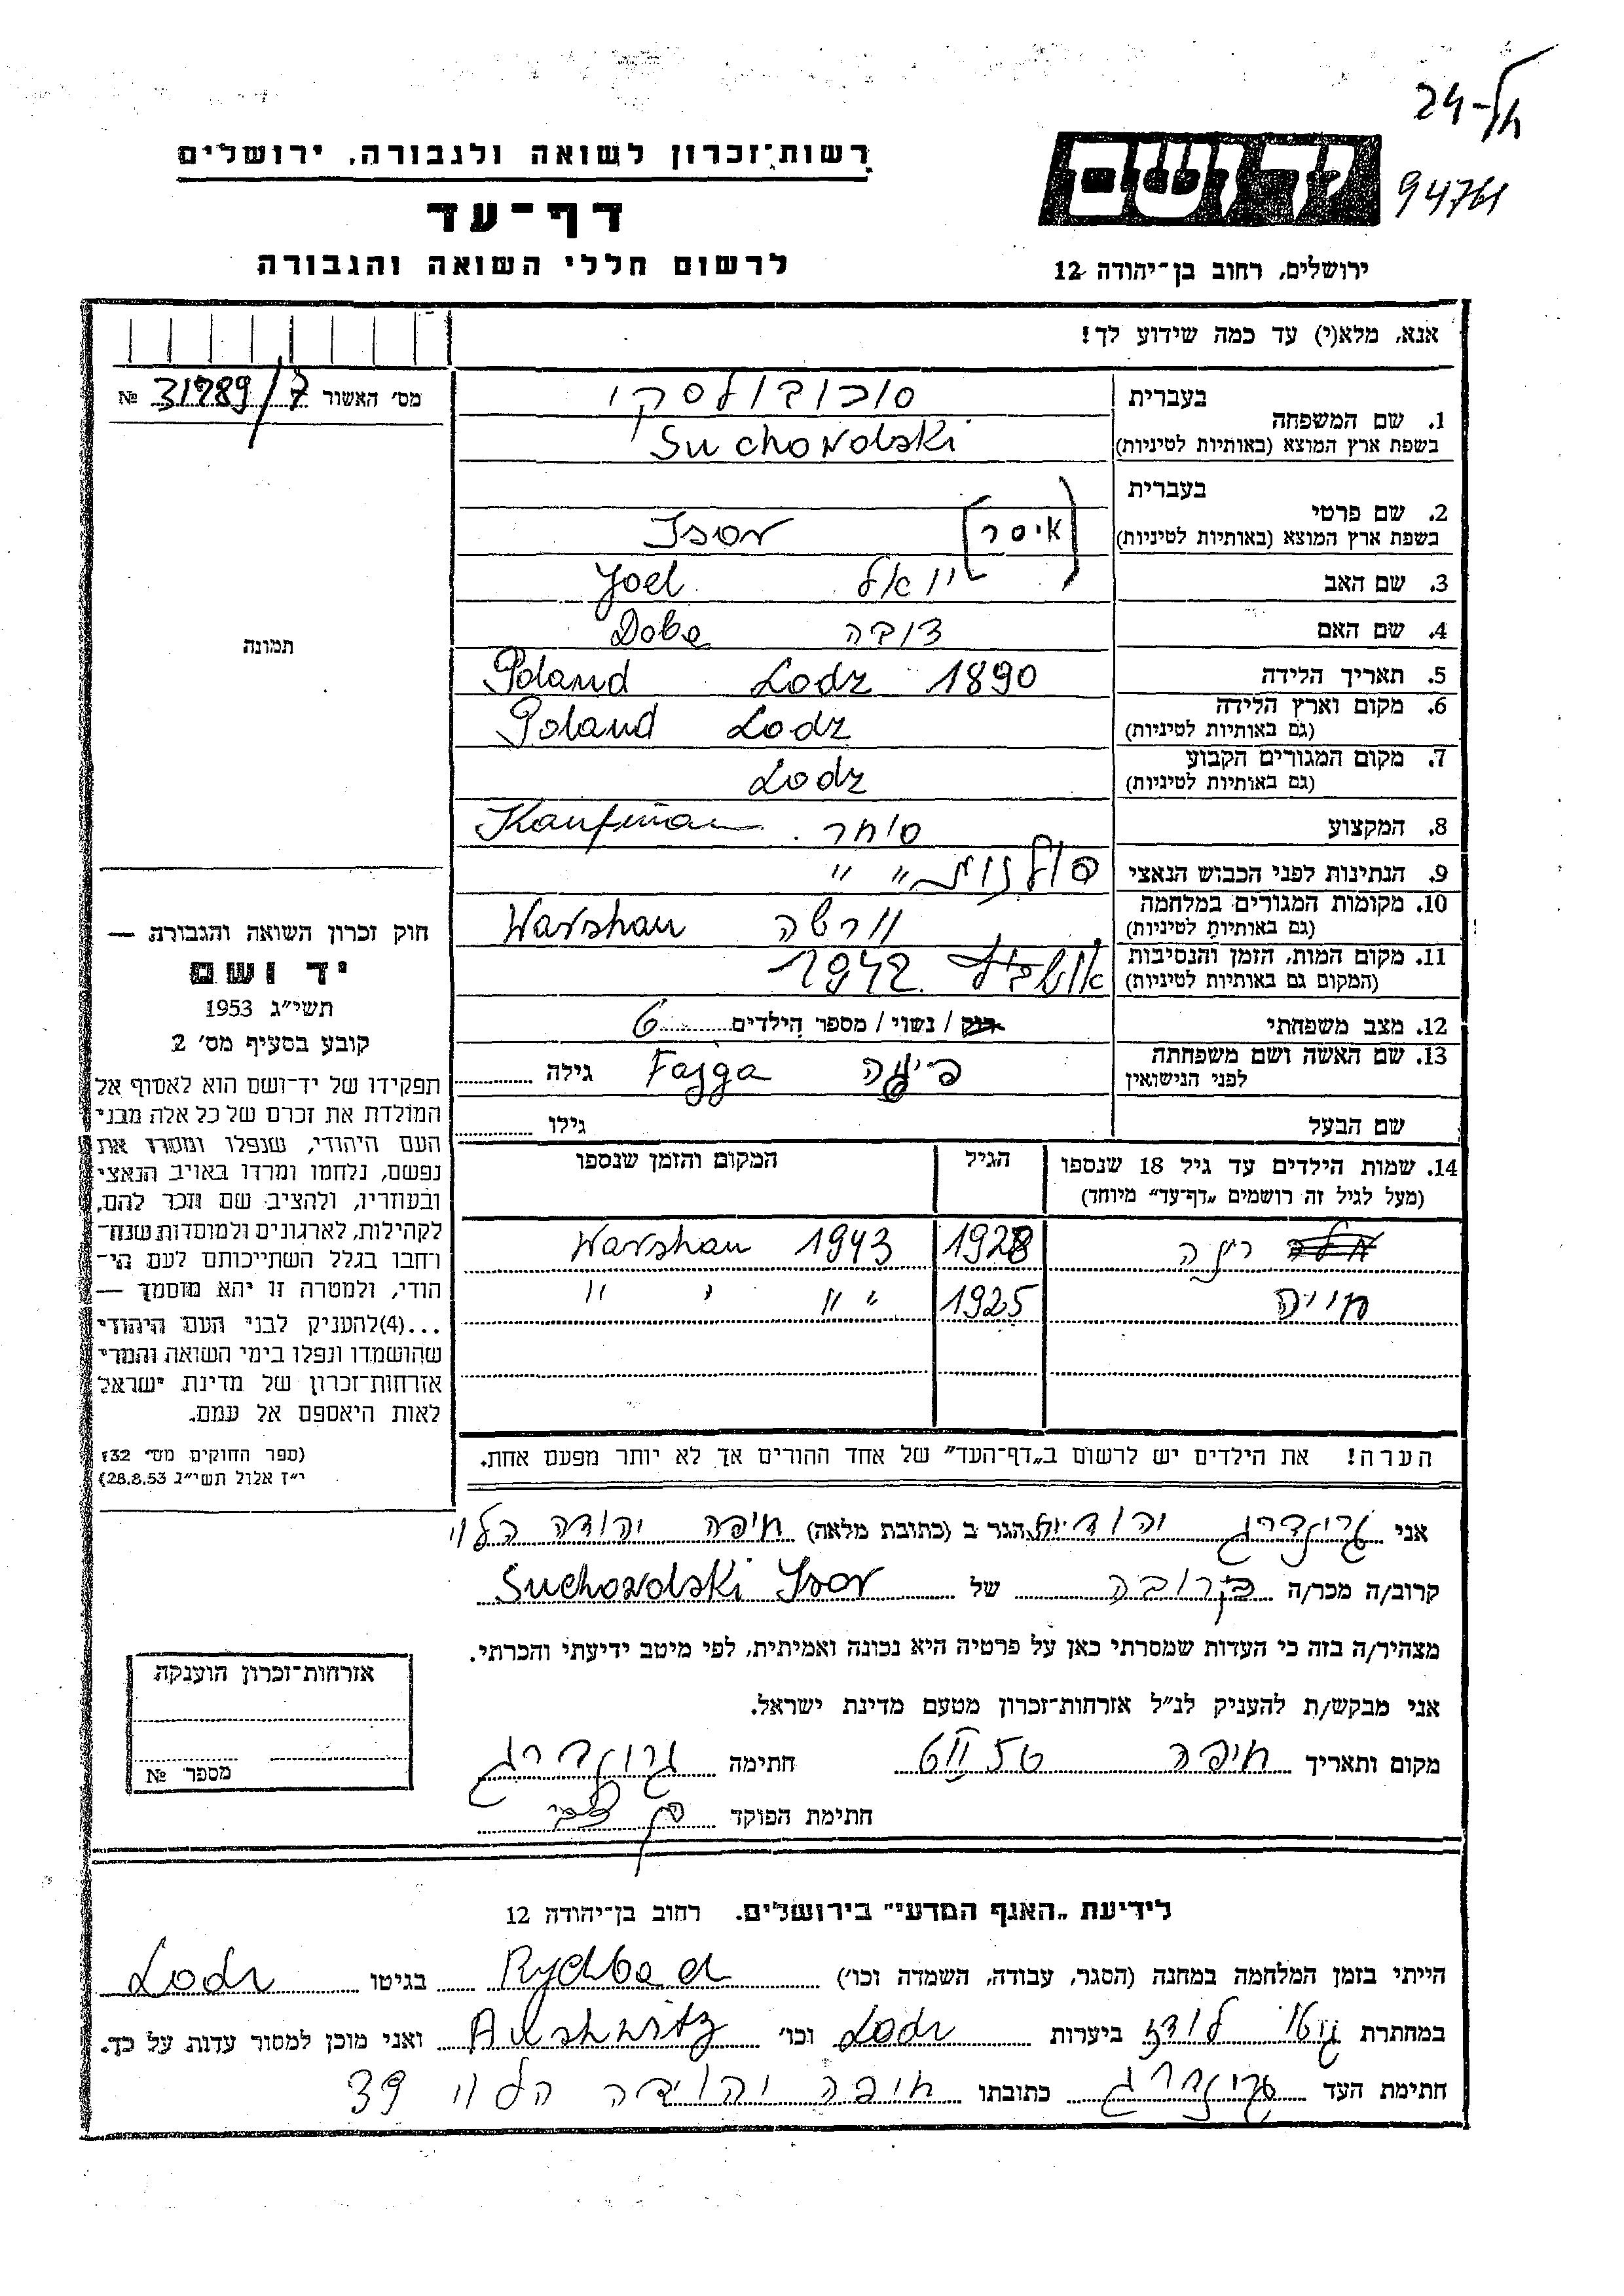 24-
94761
רשות־זכרון לשואה ולגבורה, ירושלים
ידושם
דף־עד
לרשום חללי השואה והגבורה
ירושלים, רחוב בן־יהודה 12
אנא, מלא(י) עד כמה שידוע לך!
מס׳ האשור 31289/7 №
בעברית סוכובולסקי
1. שם המשפחה
בשפת ארץ המוצא (באותיות לטיניות) Suchowolski
בעברית
2. שם פרטי [איסר] Isor
בשפת ארץ המוצא (באותיות לטיניות)
3. שם האב יואל Joel
4. שם האם דובה Doba
5. תאריך הלידה 1890 Lodz Poland
6. מקום וארץ הלידה Lodz Poland
(גם באותיות לטיניות)
7. מקום המגורים הקבוע Lodz
(גם באותיות לטיניות)
8. המקצוע סוחר. Kaufman
9. הנתינות לפני הכבוש הנאצי פולנית " "
10. מקומות המגורים במלחמה וורשה Warshau
(גם באותיות לטיניות)
11. מקום המות, הזמן והנסיבות 1942
(המקום גם באותיות לטיניות)
12. מצב משפחתי רוק / נשוי / מספר הילדים 6
13. שם האשה ושם משפחתה פייגה Fajga גילה
לפני הנישואין
שם הבעל גילו
14. שמות הילדים עד גיל 18 שנספו הגיל המקום והזמן שנספו
(מעל לגיל זה רושמים „דף־עד״ מיוחד)
רינה 1928 1943 Warshau
חייה 1925 " " "
הערה! את הילדים יש לרשום ב„דף־העד״ של אחד ההורים אך לא יותר מפעם אחת.
תמונה
חוק זכרון השואה והגבורה —
יד ושם
תשי״ג 1953
קובע בסעיף מס׳ 2
תפקידו של יד־ושם הוא לאסוף אל
המולדת את זכרם של כל אלה מבני
העם היהודי, שנפלו ומסרו את
נפשם, נלחמו ומרדו באויב הנאצי
ובעוזריו, ולהציב שם וזכר להם,
לקהילות, לארגונים ולמוסדות שנח־
רחבו בגלל השתייכותם לעם הי־
הודי, ולמטרה זו יהא מוסמך —
...(4)להעניק לבני העם היהודי
שהושמדו ונפלו בימי השואה והמרי
אזרחות־זכרון של מדינת ישראל
לאות היאספם אל עמם.
(ספר החוקים מס׳ 132
י״ז אלול תשי״ג 28.8.53)
אני גרינברג יהודית הגר ב (כתובת מלאה) חיפה יהודה הלוי
קרוב/ה מכר/ה קרובה של Suchowolski Isor
מצהיר/ה בזה כי העדות שמסרתי כאן על פרטיה היא נכונה ואמיתית, לפי מיטב ידיעתי והכרתי.
אני מבקש/ת להעניק לנ״ל אזרחות־זכרון מטעם מדינת ישראל.
מקום ותאריך חיפה חתימה גרינברג
חתימת הפוקד
אזרחות־זכרון הוענקה
מספר №
לידיעת „האגף המדעי״ בירושלים. רחוב בן־יהודה 12
הייתי בזמן המלחמה במחנה (הסגר, עבודה, השמדה וכו׳) בגיטו Lodz
במחתרת גטו לודז ביערות Lodz וכו׳ Aushwitz ואני מוכן למסור עדות על כך.
חתימת העד גרינברג כתובתו חיפה יהודה הלוי 39